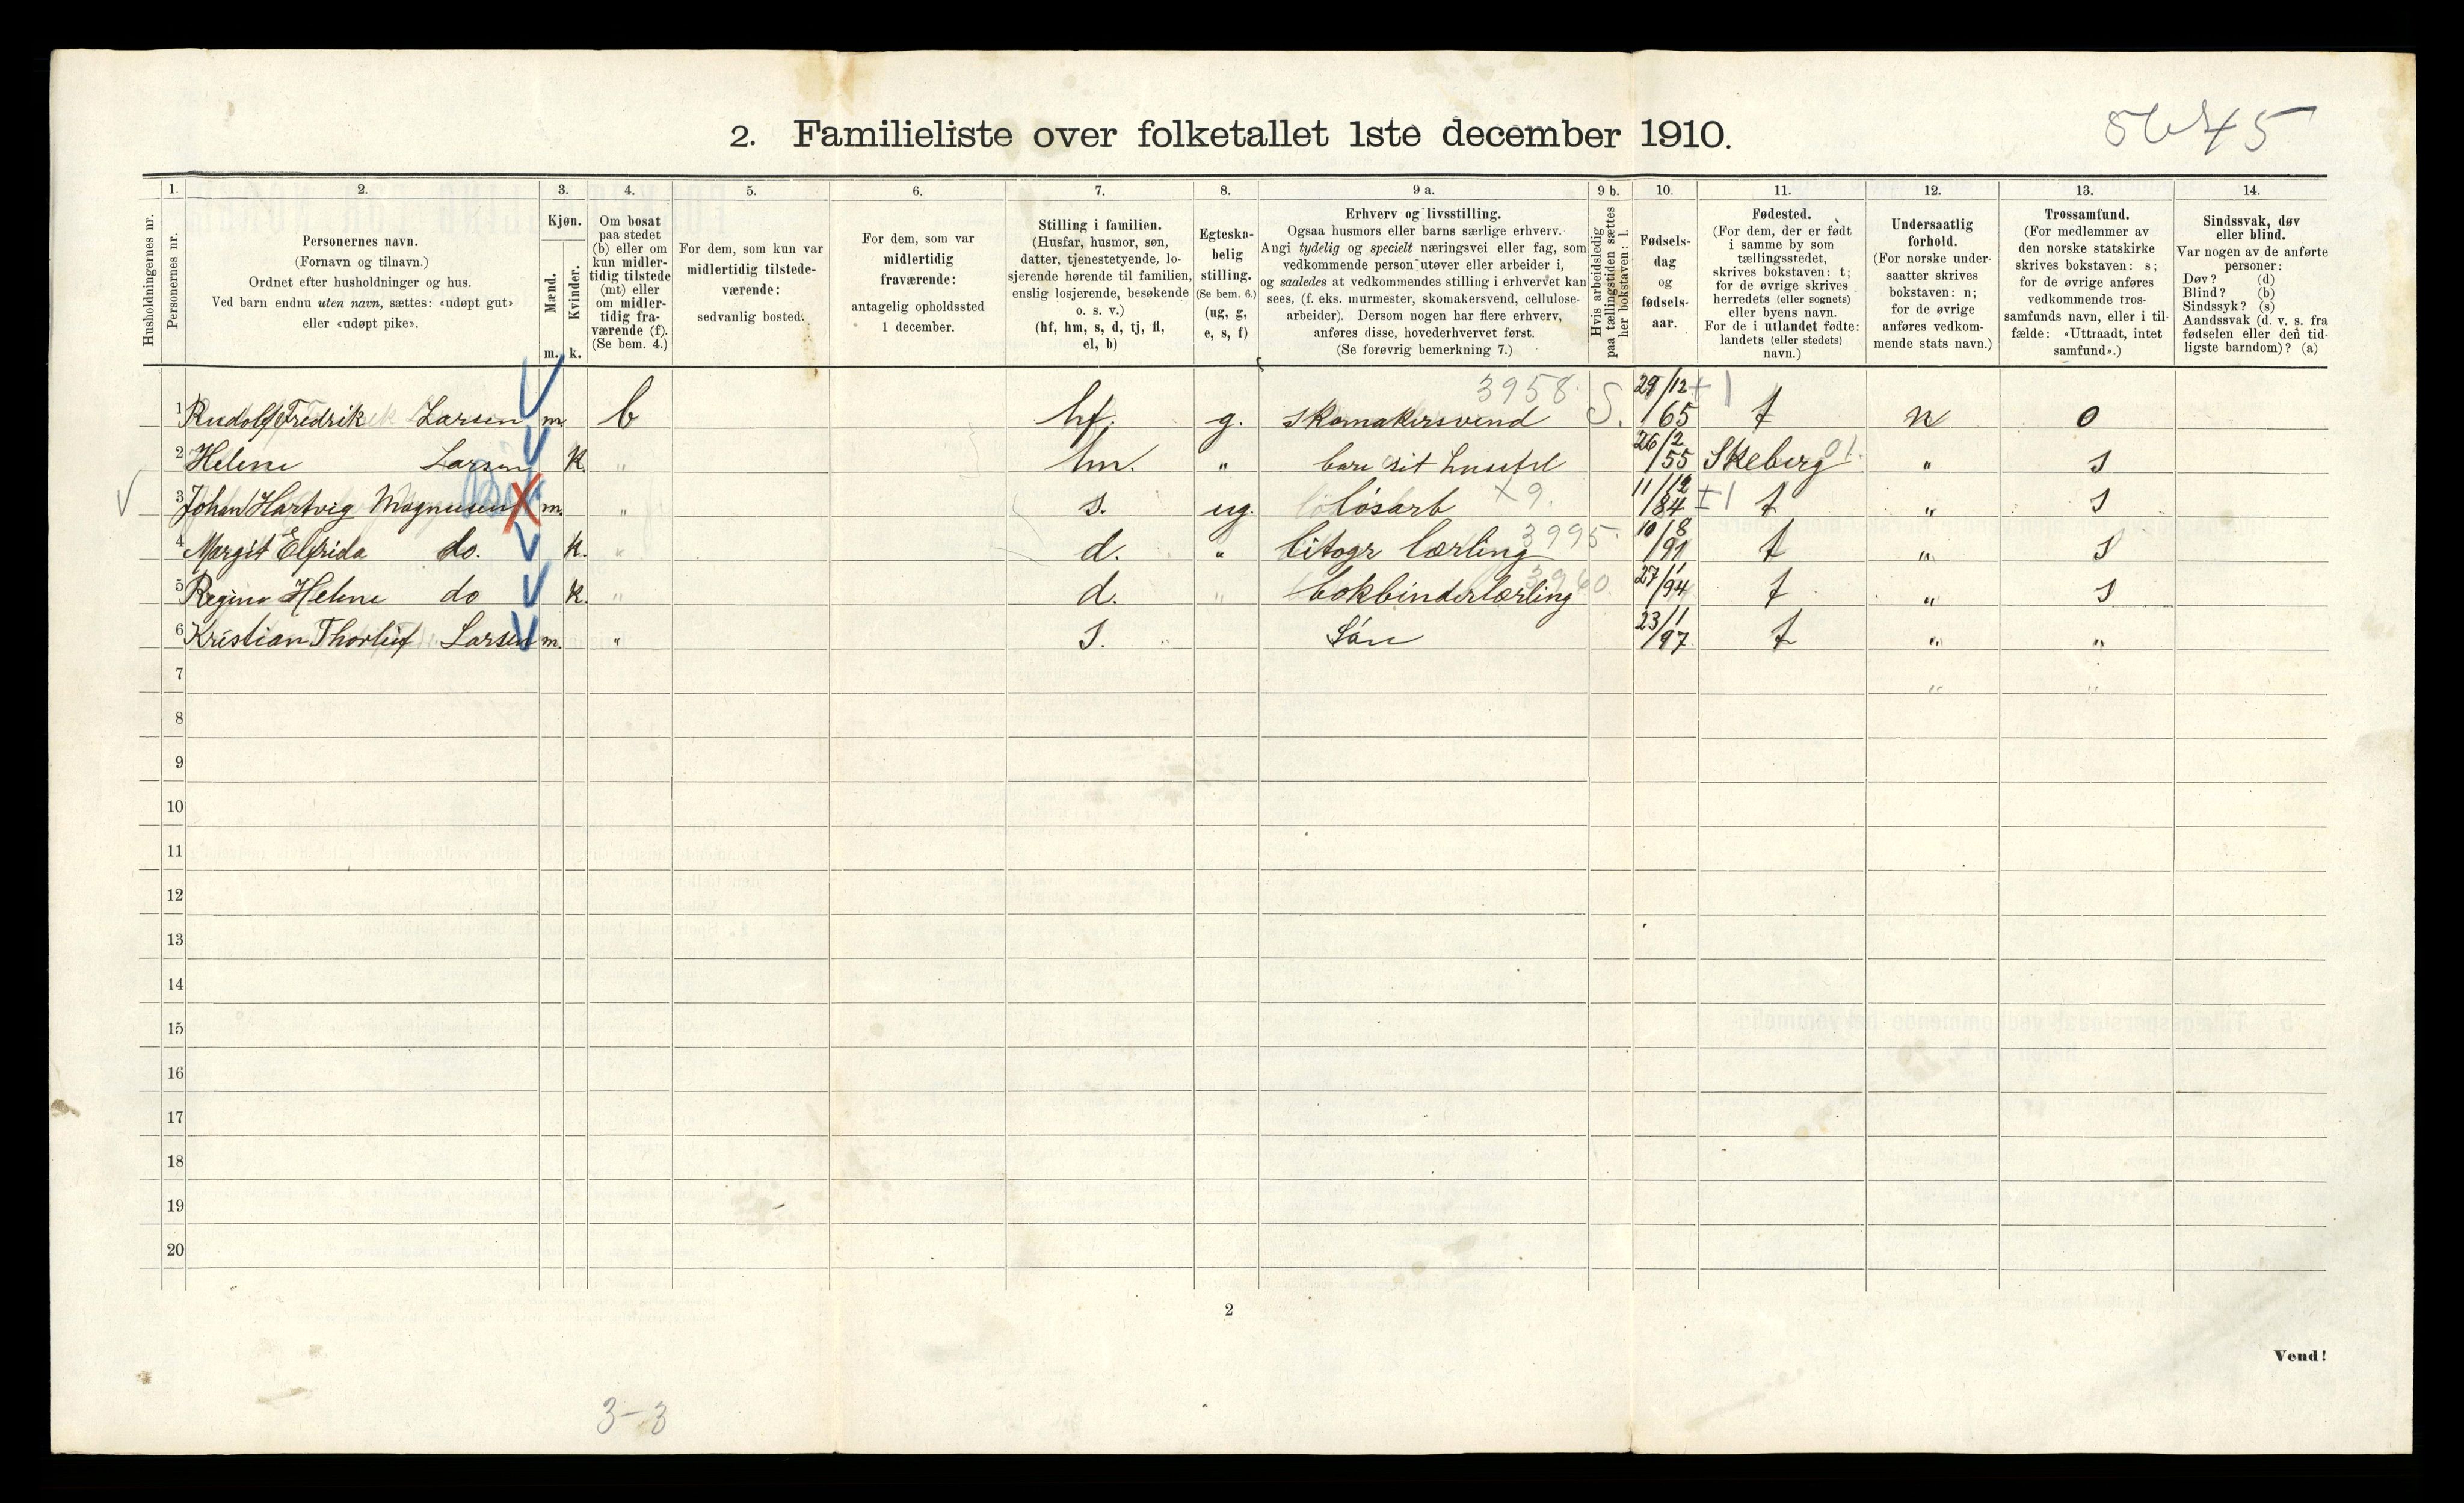 2. Familieliste over folketallet 1ste december 1910.
45
1. 2. 3. 4. 5. 6. 7. 8. 9 a. 9 b. 10. 11. 12. 13. 14.
Husholdningernes nr.
Personernes nr.
Personernes navn.
(Fornavn og tilnavn.)
Ordnet efter husholdninger og hus.
Ved barn endnu uten navn, sættes: «udøpt gut»
eller «udøpt pike».
Kjøn.
Mænd.
Kvinder.
m. k.
Om bosat
paa stedet
(b) eller om
kun midler-
tidig tilstede
(mt) eller
om midler-
tidig fra-
værende (f).
(Se bem. 4.)
For dem, som kun var
midlertidig tilstede-
værende:
sedvanlig bosted.
For dem, som var
midlertidig
fraværende:
antagelig opholdssted
1 december.
Stilling i familien.
(Husfar, husmor, søn,
datter, tjenestetyende, lo-
sjerende hørende til familien,
enslig losjerende, besøkende
o. s. v.)
(hf, hm, s, d, tj, fl,
el, b)
Egteska-
belig
stilling.
(Se bem. 6.)
(ug, g,
e, s, f)
Erhverv og livsstilling.
Ogsaa husmors eller barns særlige erhverv.
Angi tydelig og specielt næringsvei eller fag, som
vedkommende person utøver eller arbeider i,
og saaledes at vedkommendes stilling i erhvervet kan
sees, (f. eks. murmester, skomakersvend, cellulose-
arbeider). Dersom nogen har flere erhverv,
anføres disse, hovederhvervet først.
(Se forøvrig bemerkning 7.)
Hvis arbeidsledig
paa tællingstiden sættes
her bokstaven: l.
Fødsels-
dag
og
fødsels-
aar.
Fødested.
(For dem, der er født
i samme by som
tællingsstedet,
skrives bokstaven: t;
for de øvrige skrives
herredets (eller sognets)
eller byens navn.
For de i utlandet fødte:
landets (eller stedets)
navn.)
Undersaatlig
forhold.
(For norske under-
saatter skrives
bokstaven: n;
for de øvrige
anføres vedkom-
mende stats navn.)
Trossamfund.
(For medlemmer av
den norske statskirke
skrives bokstaven: s;
for de øvrige anføres
vedkommende tros-
samfunds navn, eller i til-
fælde: «Uttraadt, intet
samfund».)
Sindssvak, døv
eller blind.
Var nogen av de anførte
personer:
Døv? (d)
Blind? (b)
Sindssyk? (s)
Aandssvak (d. v. s. fra
fødselen eller den tid-
ligste barndom)? (a)
1 Rudolf Fredrik Larsen m. b hf. g. Skomakersvend 3958. S. 29/12 65 +1 t n 0
2 Helene Larsen k. " hm. " bare sit husstel 26/2 55 Skeberg 01. " s
3 Johan Hartvig Magnusen m. " s. ug. løsarb +9. 11/12 84 ±1 t " s
4 Margit Elfrida do. k. " d. " litogr lærling 3995. 10/8 91 t " s
5 Regine Helene do k. " d. " bokbinderlærling 3960. 27/1 94 t " s
6 Kristian Thorleif Larsen m. " s. Søn 23/1 97 t " "
7 " "
8
9
10
11
12
13
14
15
16
17
18
19
20
2
Vend!
3-3